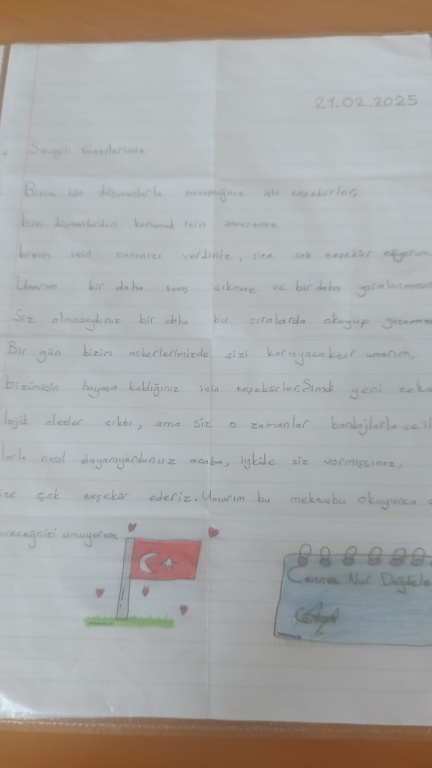 21.02.2025
Sevgili Gazilerimiz
Bizim için düşmanlarla savaştığınız için teşekürler,
bizi düşmanlardan korumak için
bizim için canınızı verdiniz, size çok teşekür ediyorum
Umarım bir daha savaş çıkmaz ve bir daha yaralanmazsın
Siz olmasaydınız bir daha bu sıralarda okuyup
Bir gün bizim askerlerimizde sizi koruyacaktır umarım,
bizimiçin hayata kaldığınız için teşekürler Şimdi yeni tekno
lojik aletler çıktı, ama siz o zamanlar bandajlarla
larla nasıl dayanıyordunuz acaba, iyikide siz varmışsınız,
ize çok teşekür ederiz. Umarım bu mektubu okuyunca
veceğnizi umuyorum
Cennet Nur